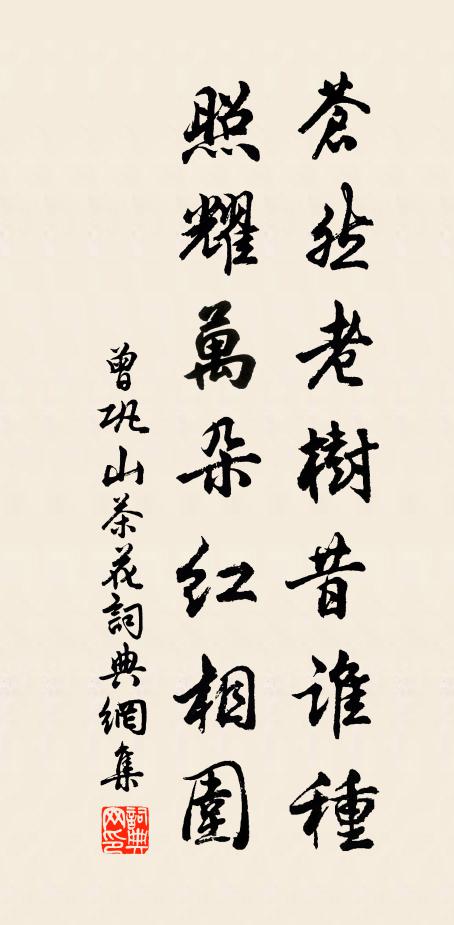 蒼然老樹昔誰種
照耀萬朵紅相圍
曾巩山茶花詞典網集
詞典網印